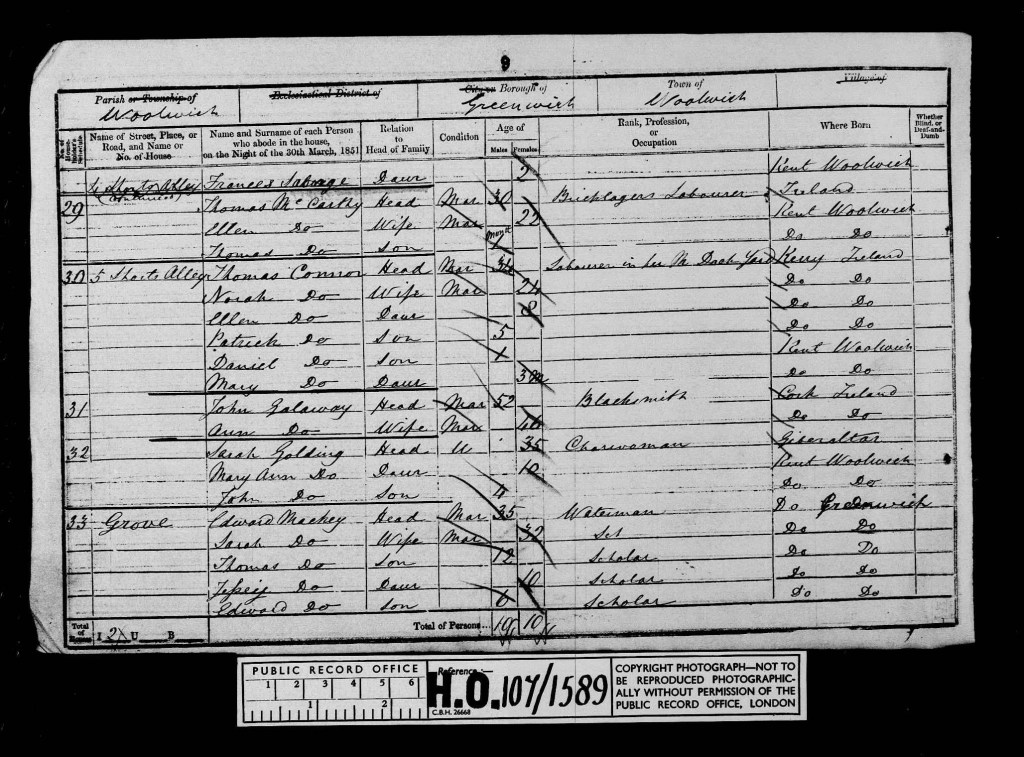 9
Parish or Township of Ecclesiastical District of City or Borough of Town of Village of
Woolwich Greenwich Woolwich
Name of Street, Place, or Road, and Name or No. of House
Name and Surname of each Person who abode in the house, on the Night of the 30th March, 1851
Relation to Head of Family
Condition
Age of
Males Females
Rank, Profession, or Occupation
Where Born
Whether Blind, or Deaf-and-Dumb
Alley Frances Daur 2 Kent Woolwich
29 Thomas McCartly Head Mar 30 Bricklayers Labourer Ireland
Ellen Do Wife Mar 22 Kent Woolwich
Thomas Do Son Month 1 Do Do
30 5 Shorts Alley Thomas Connor Head Mar Labourer in Dock Yard Kerry Ireland
Norah Do Wife Mar 24 Do Do
Ellen Do Daur 8 Do Do
Patrick Do Son 5 Do Do
Daniel Do Son 1 Kent Woolwich
Mary Do Daur Do Do
31 John Galaway Head Mar 52 Blacksmith Cork Ireland
Ann Do Wife Mar Do Do
32 Sarah Golding Head U 35 Charwoman Gibraltar
Mary Ann Do Daur 10 Kent Woolwich
John Do Son 4 Do Do
33 Grove Edward Mackey Head Mar 35 Waterman Do Greenwich
Sarah Do Wife Mar 32 Do Do
Thomas Do Son 12 Scholar Do Do
Do Daur 10 Scholar Do Do
Edward Do Son 6 Scholar Do Do
Total of I 2 U B Total of Persons... 10 10
PUBLIC RECORD OFFICE
1 2 3 4 5 6
1 2
Reference:-
H.O. 107/1589
C.B.H. 26668
COPYRIGHT PHOTOGRAPH—NOT TO
BE REPRODUCED PHOTOGRAPHIC-
ALLY WITHOUT PERMISSION OF THE
PUBLIC RECORD OFFICE, LONDON